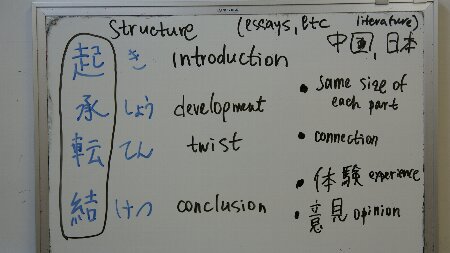 Structure (essays, Etc literature)
中国, 日本
起 き introduction
承 しょう development
転 てん twist
結 けつ conclusion
• Same size of
each part
• connection
• 体験 experience
• 意見 opinion